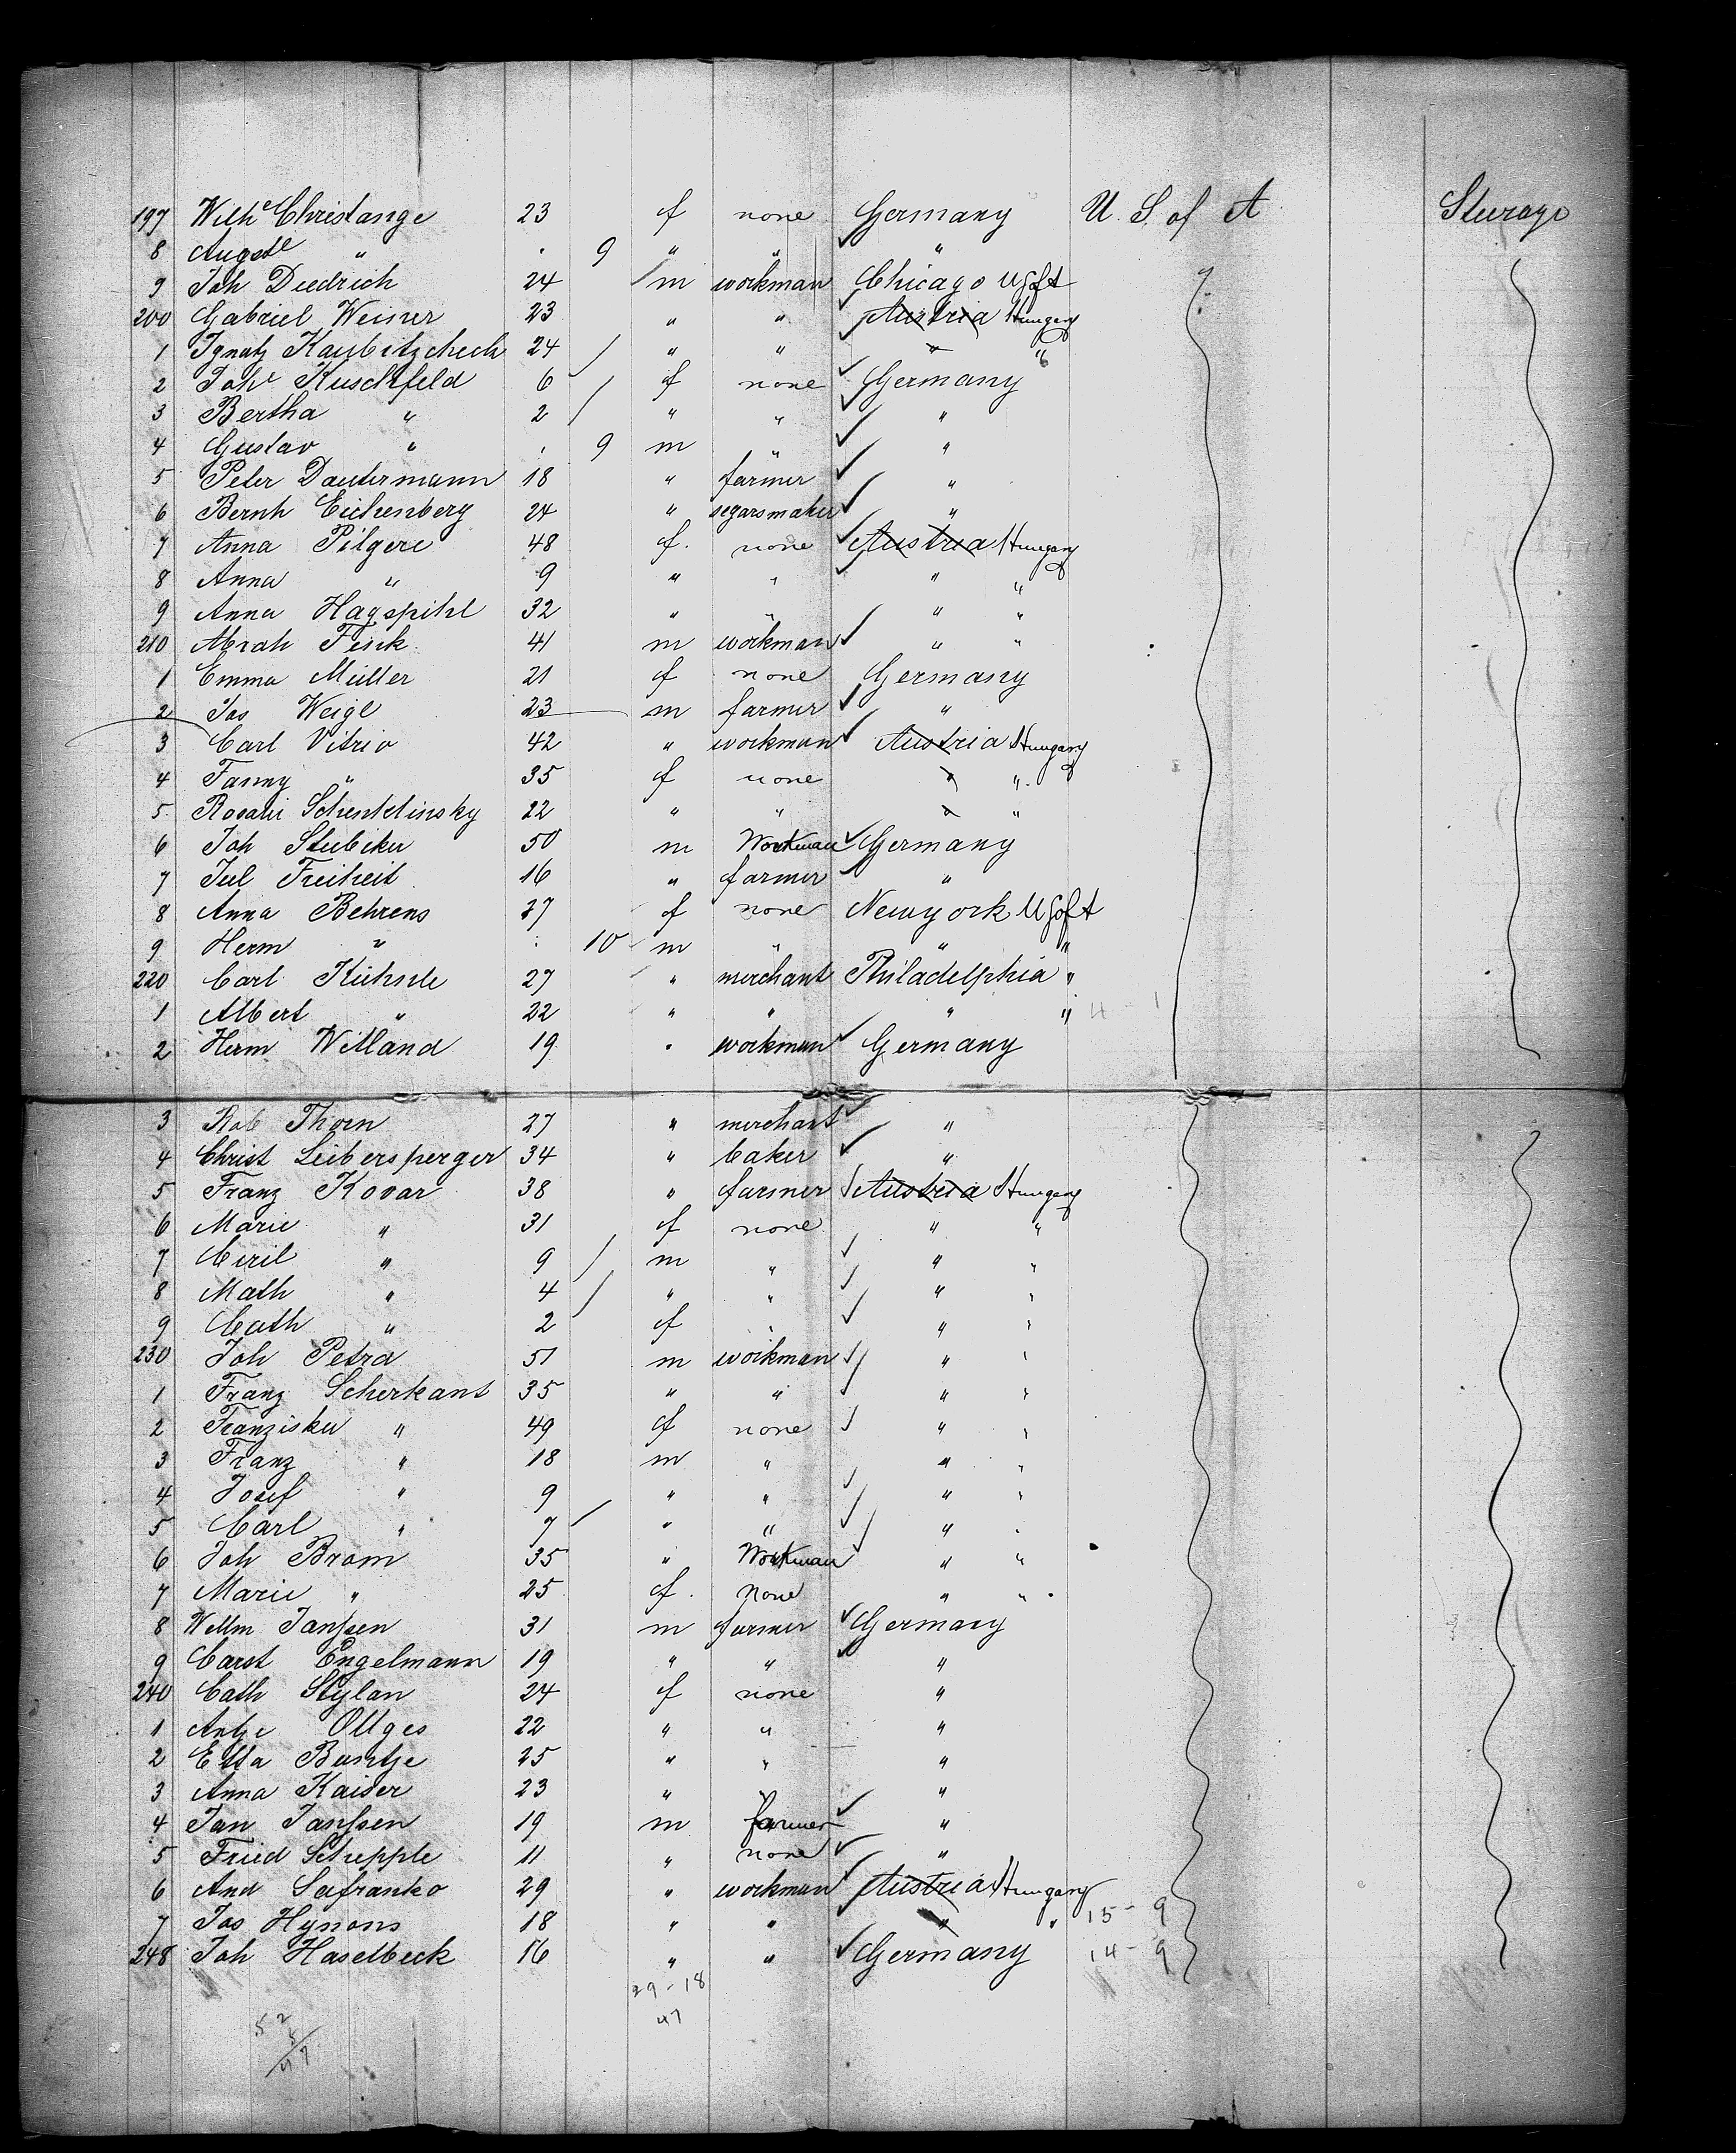 197 Wilhe Christange 23 f none Germany U. S of A Sturage
8 Auguste " . 9 " " "
9 Joh Diedrich 24 m workman Chicago USofA
200 Gabriel Weiner 23 " " Austria Hungary
1 Ignatz Kaubitzcheck 24 " " " "
2 Johe Kuschfeld 6 f none Germany
3 Bertha " 2 " " "
4 Gustav " . 9 m " "
5 Peter Dautermann 18 " farmer "
6 Bernh Eichenberg 24 " segarsmaker "
7 Anna Pilgere 48 f. none Austria Hungary
8 Anna " 9 " " " "
9 Anna Hagspihl 32 " " " "
210 Abrah Fisik 41 m workman " "
1 Emma Müller 21 f none Germany
2 Jos Weigl 23 m farmer "
3 Carl Vitrio 42 " workman Austria Hungary
4 Fanny " 35 f none " "
5 Rosalie Schenklinsky 22 " " " "
6 Joh Stubiku 50 m Workman Germany
7 Jul Freiheit 16 " farmer "
8 Anna Behrens 27 f none Newyork USofA
9 Herm " . 10 m " " "
220 Carl Kühnle 27 " merchant Philadelphia "
1 Albert " 22 " " " " 4 - 1
2 Herm Witland 19 " workman Germany
3 Rob Thorn 27 " merchant "
4 Christ Leibersperger 34 " baker "
5 Franz Kovar 38 " farmer Austria Hungary
6 Marie " 31 f none " "
7 Ciril " 9 m " " "
8 Math " 4 " " " "
9 Cath " 2 f " " "
230 Joh Petra 51 m workman " "
1 Franz Scherkant 35 " " " "
2 Franziska " 49 f none " "
3 Franz " 18 m " " "
4 Josef " 9 " " " "
5 Carl " 7 " " " "
6 Joh Brom 35 " Workman " "
7 Marie " 25 f. none " "
8 Wellm Janssen 31 m farmer Germany
9 Carst Engelmann 19 " " "
240 Cath Stylan 24 f none "
1 Antje Ottges 22 " " "
2 Etta Buntje 25 " " "
3 Anna Kaiser 23 " " "
4 Jan Janssen 19 m farmer "
5 Fried Schepple 11 " none "
6 And Safranko 29 " workman Austria Hungary
7 Jos Hynons 18 " " " " 15 - 9
248 Joh Haselbeck 16 " " Germany 14 - 9
29 - 18
47
52
5
47